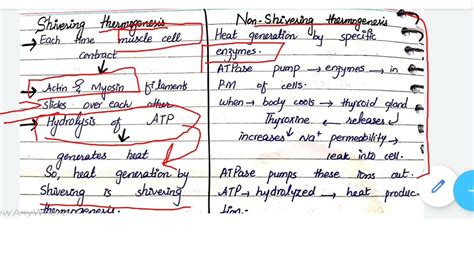 Shivering thermogenesis
→ Each time muscle cell
contract
→ Actin & Myosin filaments
slides over each other
→ Hydrolysis of ATP
generates heat
So, heat generation by
Shivering is shivering
thermogenesis.
Non-Shivering thermogenesis
Heat generation by specific
enzymes.
ATPase pump → enzymes → in
PM of cells.
when → body cools → thyroid gland
Thyroxine ← releases
increases Na+ permeability →
leak into cell.
ATPase pumps these ions out.
ATP → hydrolyzed → heat produc-
tion.